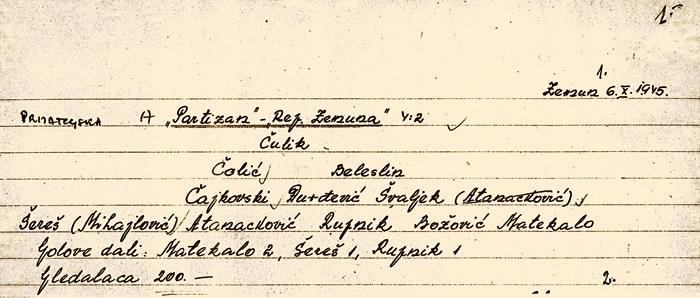 1.
1.
Zemun 6.X.1945.
PRIJATELJSKA A „Partizan" - „Rep. Zemuna" 4:2
Čulik
Čolić Beleslin
Čajkovski Đurđević Švaljek (Atanacković)
Šereš (Mihajlović) Atanacković Rupnik Božović Matekalo
Golove dali: Matekalo 2, Šereš 1, Rupnik 1
Gledalaca 200.—
2.